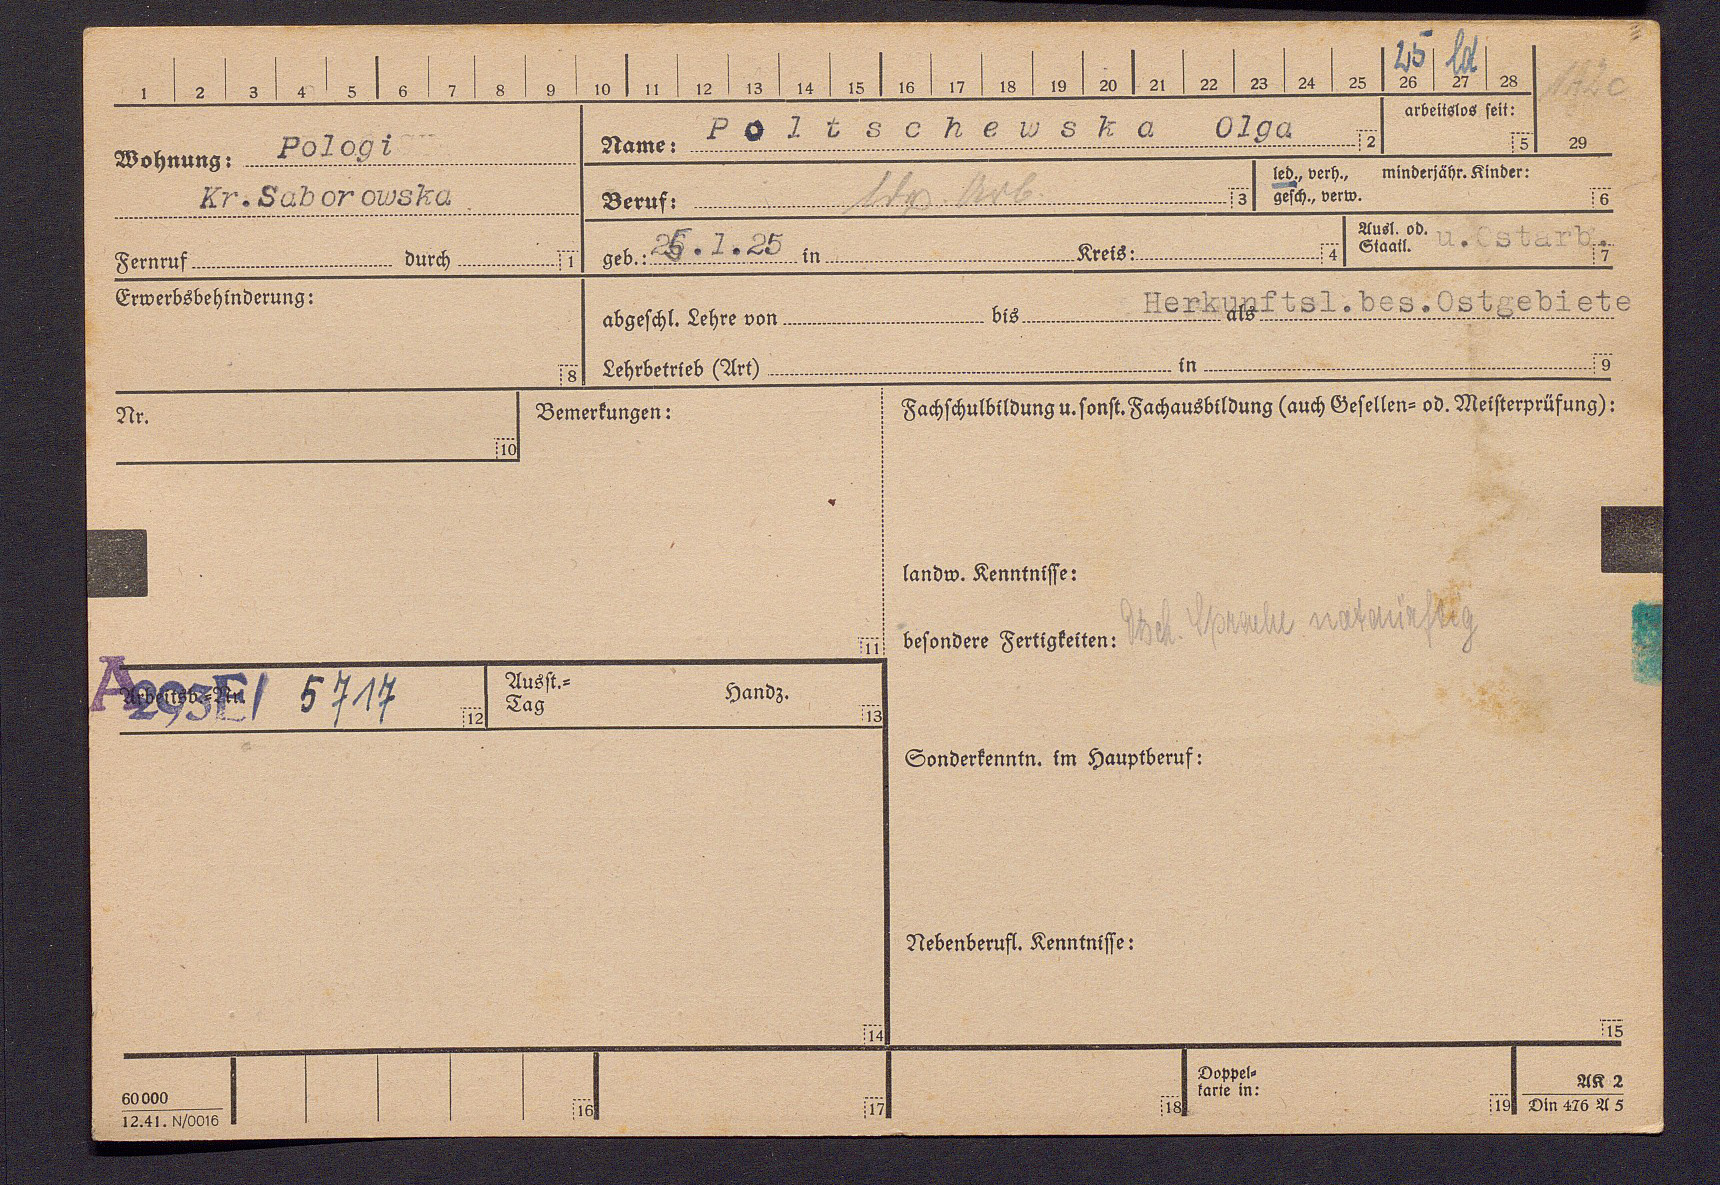 25 ld
1 2 3 4 5 6 7 8 9 10 11 12 13 14 15 16 17 18 19 20 21 22 23 24 25 26 27 28
arbeitslos seit:
5
29
Wohnung: Pologi
Kr.Saborowska
Name: Poltschewska Olga
2
Beruf: Arb.
3
led., verh., minderjähr. Kinder:
gesch., verw.
6
Fernruf durch
1
geb.: 25.1.25 in Kreis:
4
Ausl. od.
Staatl. u.Ostarb.
7
Erwerbsbehinderung:
8
Herkunftsl.bes.Ostgebiete
abgeschl. Lehre von bis als
Lehrbetrieb (Art) in
9
Nr.
10
Bemerkungen:
11
Fachschulbildung u. sonst. Fachausbildung (auch Gesellen= od. Meisterprüfung):
landw. Kenntnisse:
besondere Fertigkeiten: Dtsch. Sprache notdürftig
Sonderkenntn. im Hauptberuf:
Nebenberufl. Kenntnisse:
15
Arbeitsb.=Nr.
A293E/ 5717
12
Ausst.=
Tag
Handz.
13
14
60000
12.41. N/0016
16
17
18
Doppel=
karte in:
19
AK 2
Din 476 A 5